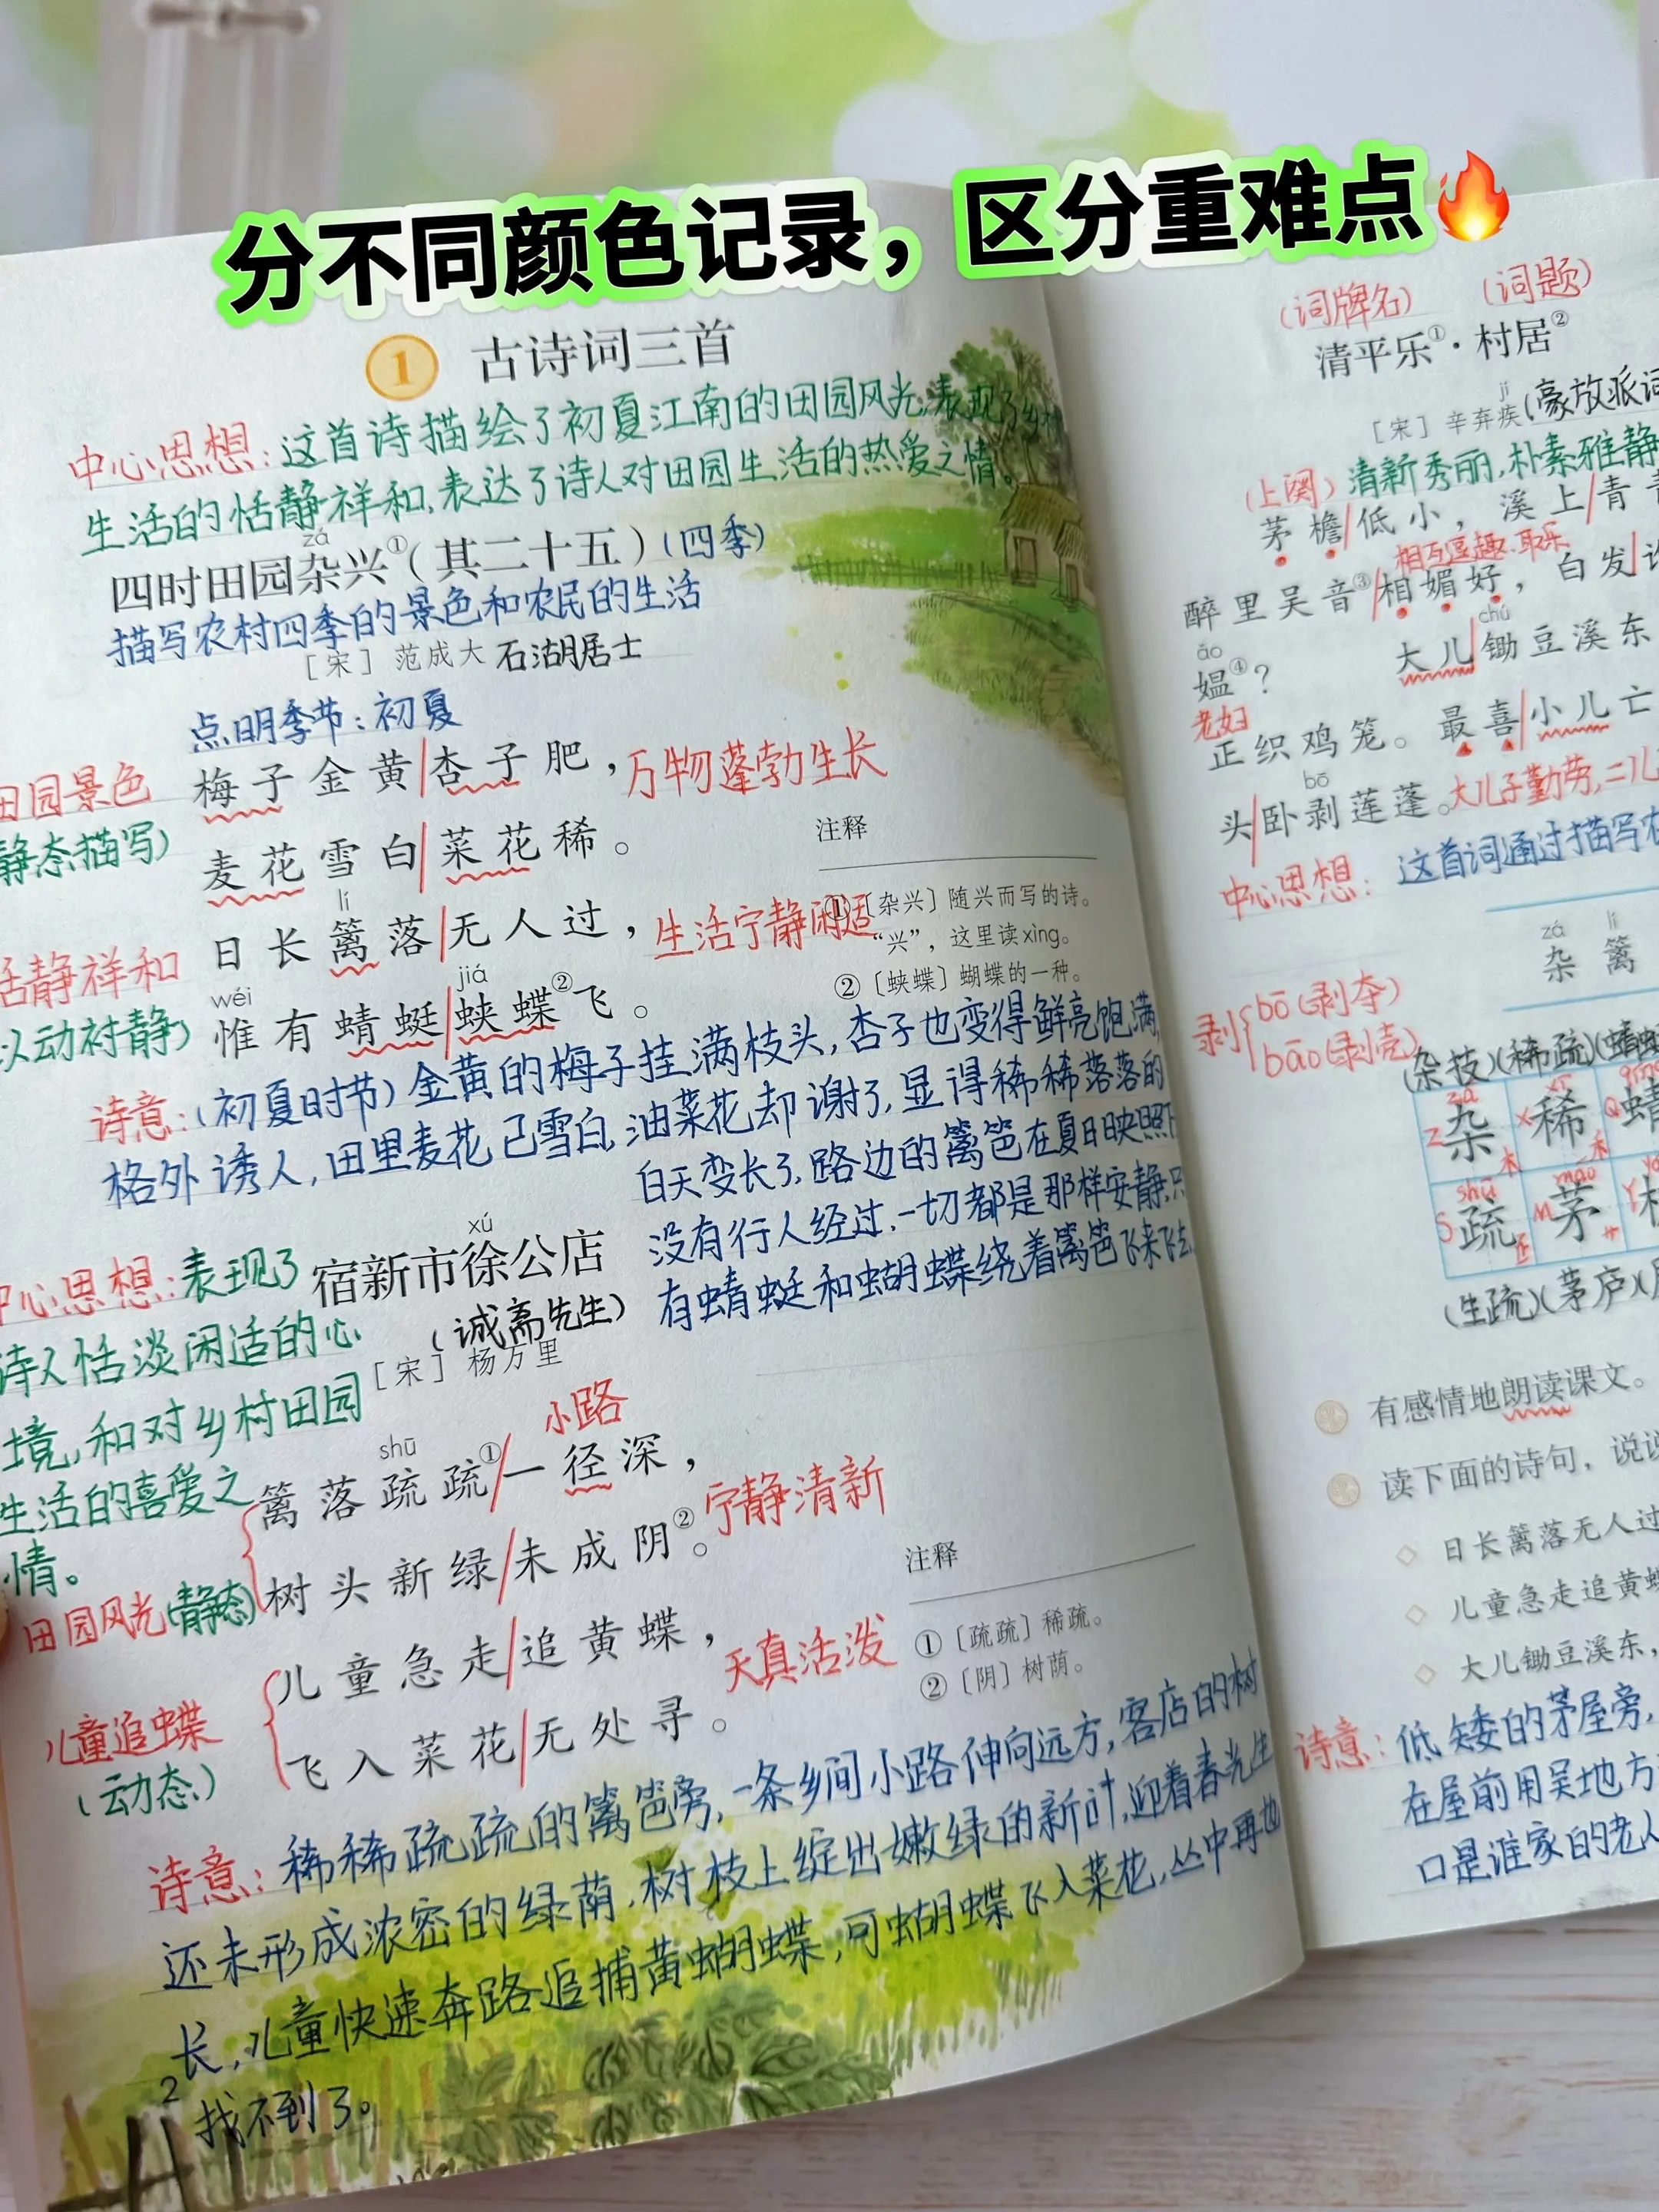 分不同颜色记录，区分重难点
1 古诗词三首
中心思想：这首诗描绘了初夏江南的田园风光，表现了乡村
生活的恬静祥和，表达了诗人对田园生活的热爱之情。
zá
四时田园杂兴①（其二十五）（四季）
描写农村四季的景色和农民的生活
［宋］范成大 石湖居士
点明季节：初夏
田园景色
梅子金黄/杏子肥，万物蓬勃生长
静态描写）
麦花雪白/菜花稀。
lí
恬静祥和
日长篱落/无人过，生活宁静闲适
wéi jiá
以动衬静）
惟有蜻蜓/蛱蝶②飞。
注释
①〔杂兴〕随兴而写的诗。
“兴”，这里读xìng。
②〔蛱蝶〕蝴蝶的一种。
诗意：（初夏时节）金黄的梅子挂满枝头，杏子也变得鲜亮饱满，
格外诱人，田里麦花已雪白，油菜花却谢了，显得稀稀落落的
白天变长了，路边的篱笆在夏日映照下
没有行人经过，一切都是那样安静，只
有蜻蜓和蝴蝶绕着篱笆飞来飞去
xú
宿新市徐公店
（诚斋先生）
［宋］杨万里
中心思想：表现了
诗人恬淡闲适的心
境，和对乡村田园
生活的喜爱之
情。
小路
shū
篱落疏疏①/一径深，
树头新绿/未成阴②。宁静清新
田园风光（静态）
儿童急走/追黄蝶，
飞入菜花/无处寻。
天真活泼
儿童追蝶
（动态）
注释
①〔疏疏〕稀疏。
②〔阴〕树荫。
诗意：稀稀疏疏的篱笆旁，一条乡间小路伸向远方，客店的树
还未形成浓密的绿荫，树枝上绽出嫩绿的新叶，迎着春光生
长，儿童快速奔路追捕黄蝴蝶，可蝴蝶飞入菜花，丛中再也
找不到了。
2
（词牌名）（词题）
清平乐①·村居②
jí
［宋］辛弃疾（豪放派词
（上阕）清新秀丽，朴素雅静
茅檐/低小，溪上/青青
相互逗趣、取乐
醉里吴音③/相媚好，白发/谁
ǎo chú
媪④？ 大儿/锄豆溪东
老妇
正织鸡笼。最喜/小儿亡
bō
头/卧剥莲蓬。大儿子勤劳，二儿
中心思想：这首词通过描写农
zá lí
杂 篱
剥 bō（剥夺）
bāo（剥壳）
（杂技）（稀疏）（蜻蜓
zá xī qīng
Z 杂 木 X 稀 禾 Q 蜻
shū máo
S 疏 M 茅 艹 Y
（生疏）（茅庐）（
有感情地朗读课文。
读下面的诗句，说说
日长篱落无人过
儿童急走追黄蝶
大儿锄豆溪东，
诗意：低矮的茅屋旁，
在屋前用吴地方
口是谁家的老人